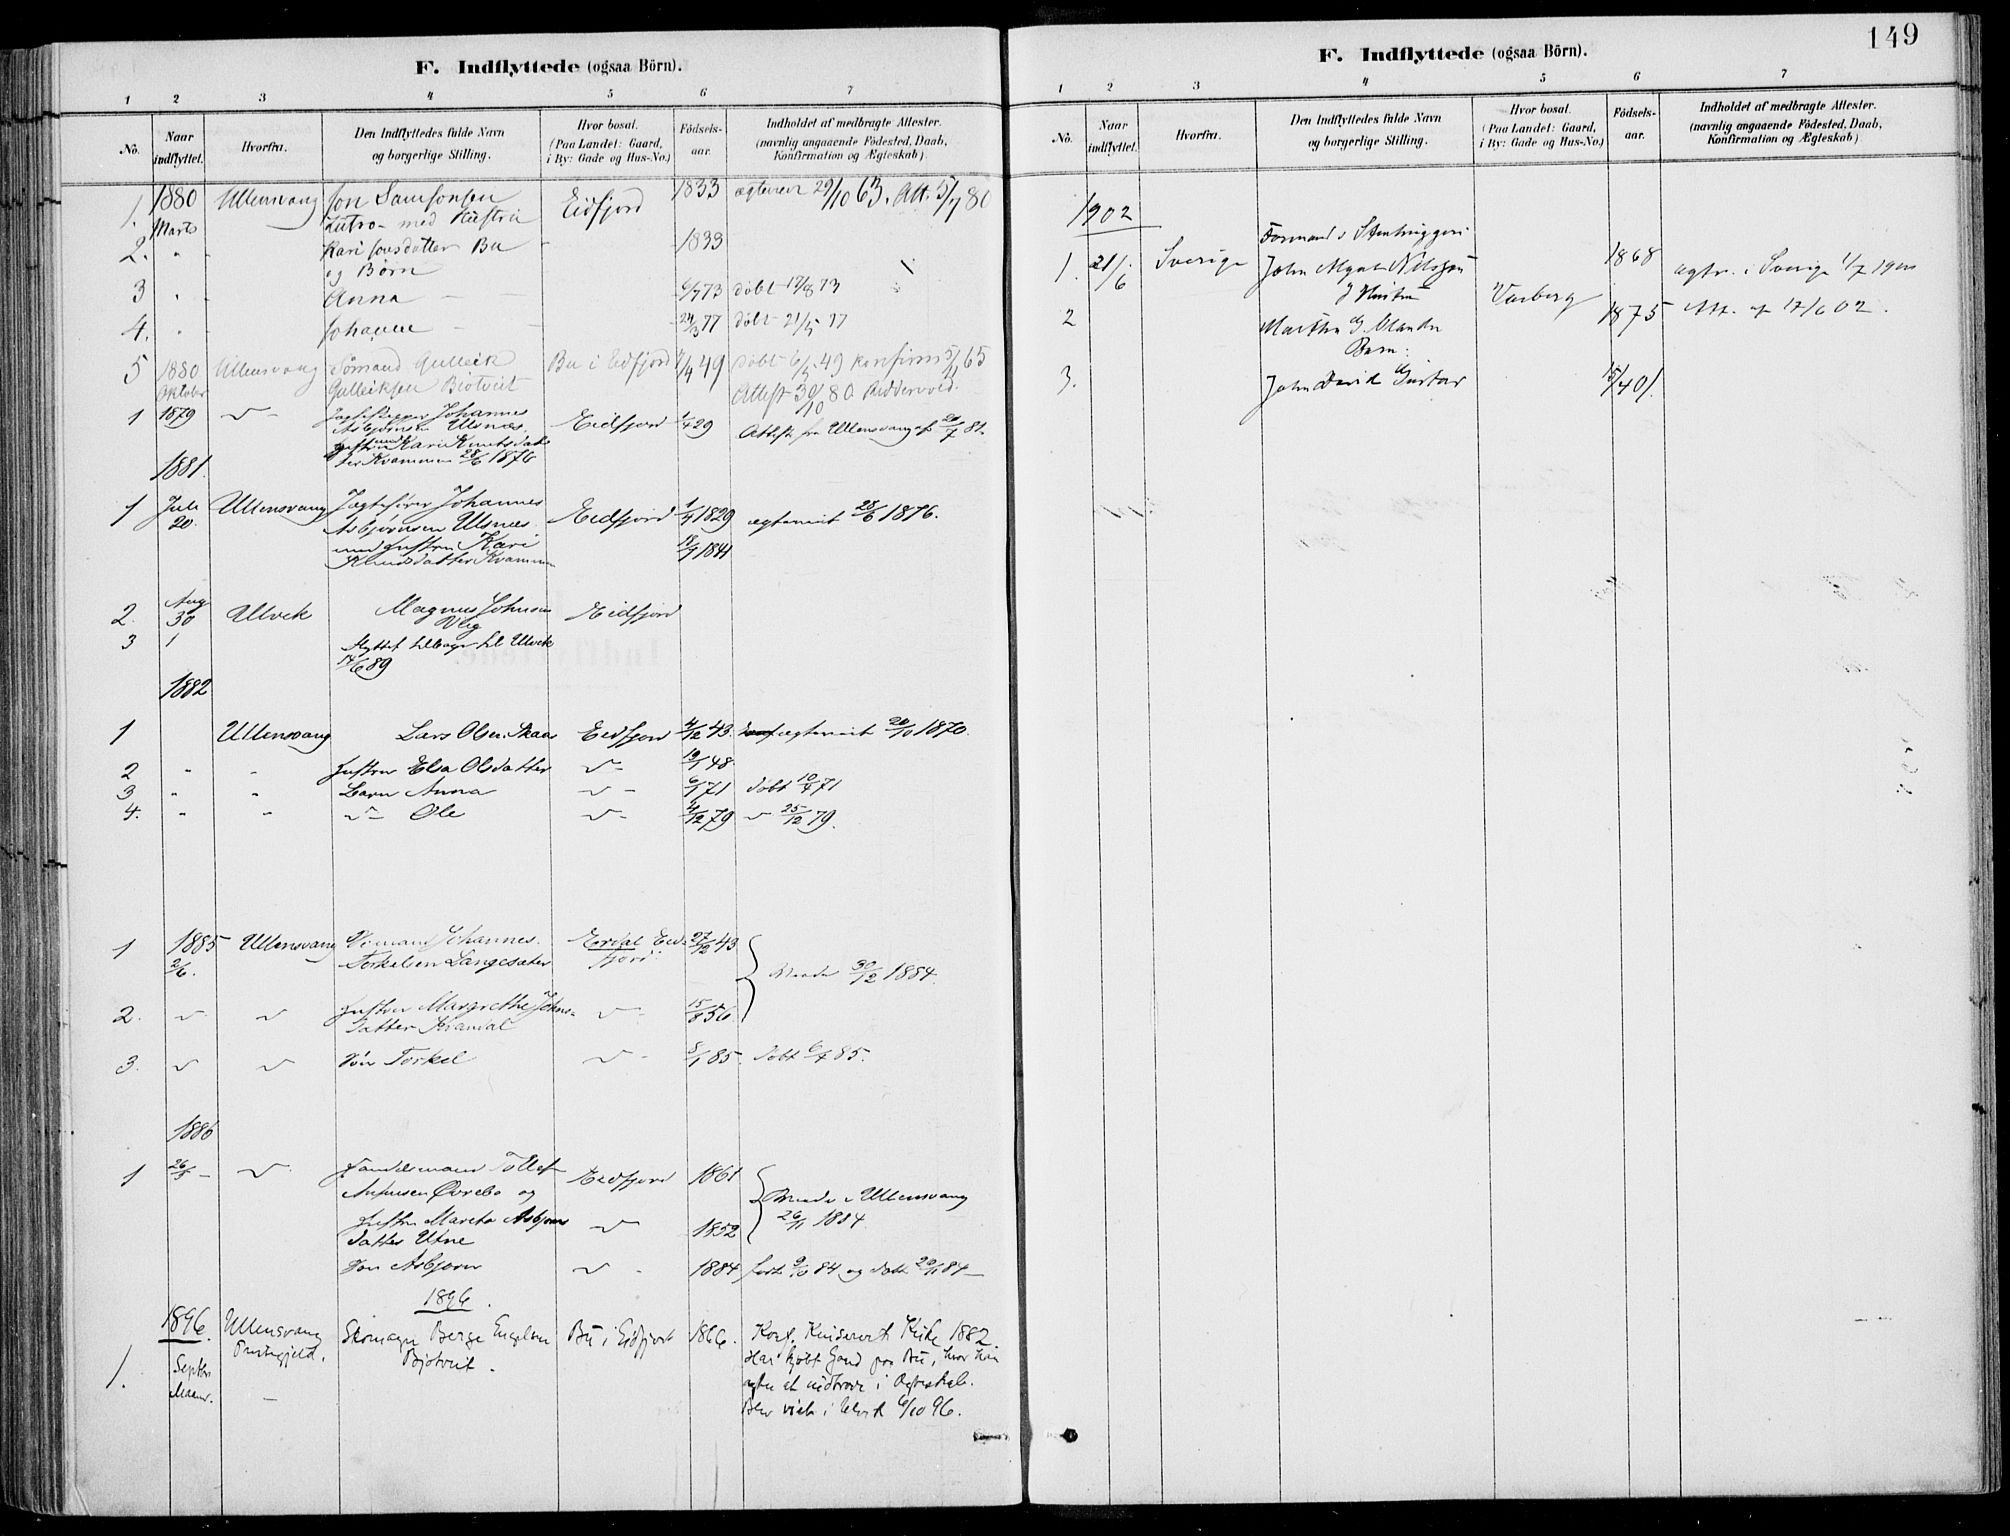 149
F. Indflyttede (ogsaa Börn).
1 2 3 4 5 6 7
No. Naar indflyttet. Hvorfra. Den Indflyttedes fulde Navn og borgerlige Stilling. Hvor bosat. (Paa Landet: Gaard, i By: Gade og Hus-No.) Födsels-aar. Indholdet af medbragte Attester. (navnlig angaaende Födested, Daab, Konfirmation og Ægteskab)
1. 1880 Ullensvang Jon Samsonsen Eidfjord 1833 ægteviet 29/10 63. Att. 5/7 80
Marts Lutro med Hustru
2. " - Kari Jonsdatter Bu - 1833
og Børn
3 " Anna - - 6/7 73 døbt 17/8 73
4. " Johanne - - 24/3 77 døbt 21/5 77
5 1880 Ullensvang Sømand Gulleik Bu i Eidfjord 1/4 49 døbt 6/5 49 konfirm 5/11 65
Oktober Gulleiksen Bjotveit Attest 30/10 80 Riddervold
1 1879 Jagteskipper Johannes Eidfjord 1/4 29 Attest fra Ullensvang af 20/7 81.
Asbjørnsen Ulsnæs
med Hustru Kari Knutsdat-
ter Kvammen 28/6 1876
1881.
1 Juli Ullensvang Jagtefører Johannes Eidfjord 1/4 1829 ægteviet 28/6 1876.
20. Asbjørnsen Ulsnæs
med Hustru Kari 18/9 1841
Knudsdatter Kvammen
Aug
2. 30 Ulvik Magnus Johnsen Eidfjord
3 1 Flyttet tilbage til Ulvik
14/6 89
1882
1 Ullensvang Lars Olsen Skaar Eidfjord 4/12 43. ægteviet 20/10 1870.
2 " " Hustru Elsa Olsdatter 19/1 48
3 " " Barn Anna 6/1 71 døbt 10/4 71
4. " " Ole 4/12 79 25/12 79.
1 1885 Ullensvang Johannes Erdal Eid- 27/12 43
2/6. Torkelsen Langesæter fjord Viede 30/12 1884.
2. Hustru Margrethe Johns- 15/8 56
datter Kvandal
3. Søn Torkel 8/1 85. døbt 6/4 85.
1886
1 26/5 - Handelsmand Tollef Eidfjord 1861
Øvrebø og Viede i Ullensvang
Hustru Mareta Asbjørns- 1852 26/11 1884
datter Utne
Søn Asbjørn 1884 født 9/10 84 og døbt 29/11 84
1896.
1896. Ullensvang Skomager Børge Engelsen Bu i Eidfjord 1866. Konf. Kinservik Kirke 1882
Prestegjeld. Bjotveit. Har kjøbt Gaard paa Bu, hvor han
1. Septbr agter at indtræde i Ægteskab.
Maaned. - Blev viet i Ulvik 6/10 96.
F. Indflyttede (ogsaa Börn).
1 2 3 4 5 6 7
No. Naar indflyttet. Hvorfra. Den Indflyttedes fulde Navn og borgerlige Stilling. Hvor bosat. (Paa Landet: Gaard, i By: Gade og Hus-No.) Födsels-aar. Indholdet af medbragte Attester. (navnlig angaaende Födested, Daab, Konfirmation og Ægteskab)
1902
Formand v Stenhuggeri
1. 21/6 Sverige John Nilsson 1868 ægtv. i Sverige 1/7 1900
& Hustru Varberg
2 G. 1875 Att. af 17/6 02.
Barn:
3. John David Gustav 15/4 01.